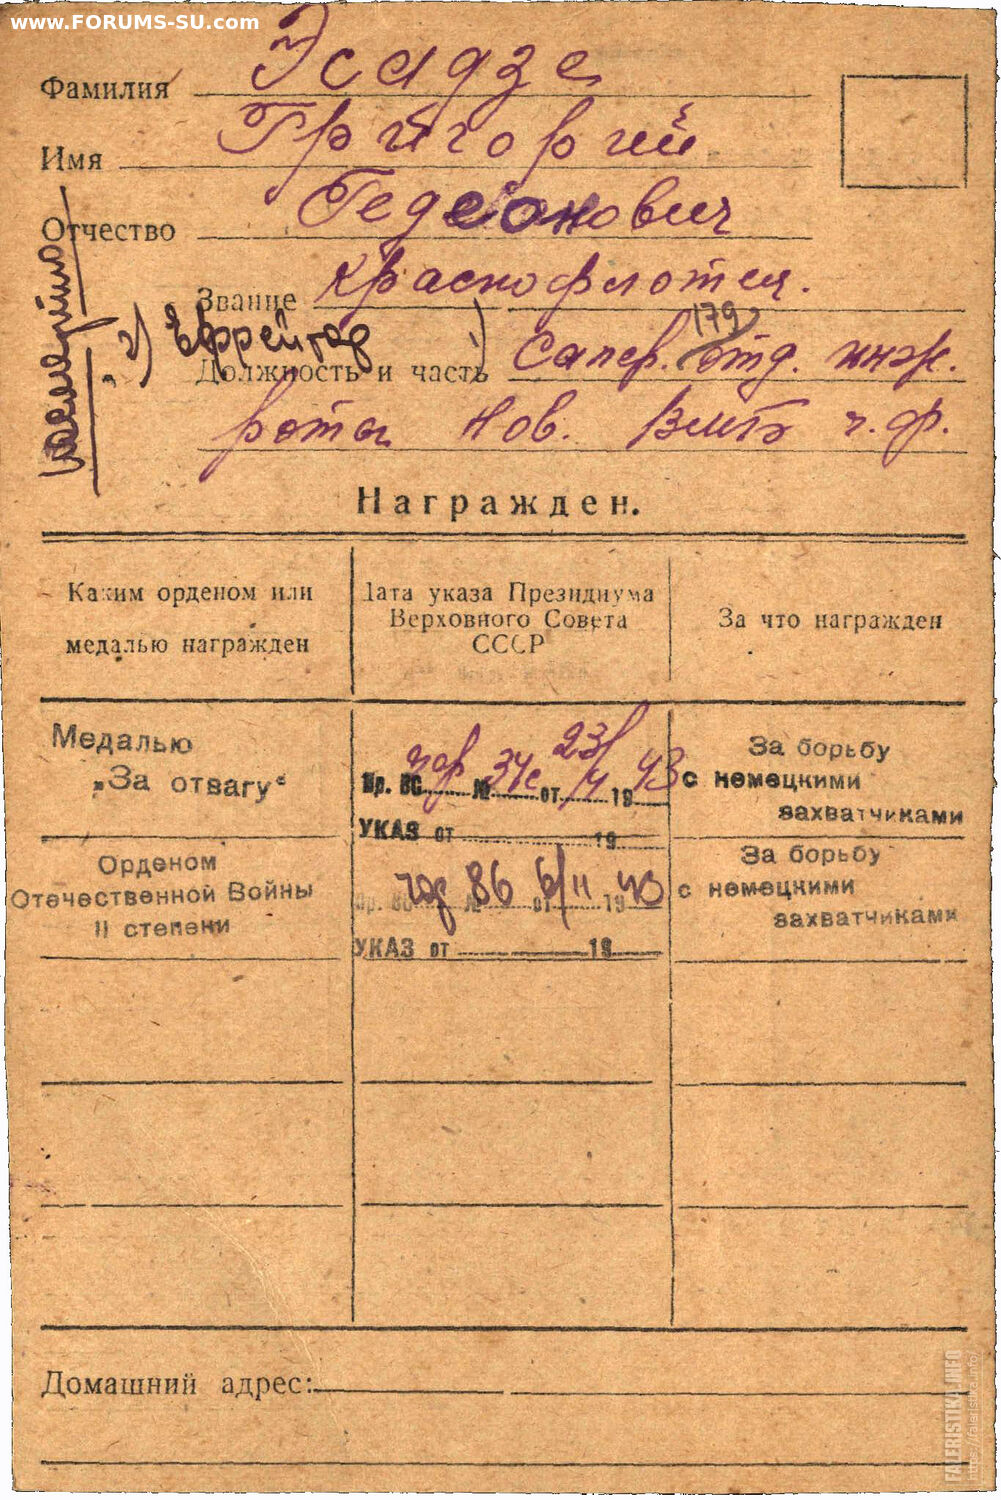 www.FORUMS-SU.com
Фамилия Эсадзе
Имя Григорий
Отчество Гедеонович
Звание краснофлотец.
2) Ефрейтор
179
Должность и часть сапер. отд. инж.
роты Нов. ВМБ ч.ф.
Награжден.
Каким орденом или медалью награжден
Дата указа Президиума Верховного Совета СССР
За что награжден
Медалью
„За отвагу“
Пр. ВС чф № 34с от 23/4 1943
УКАЗ от 19
За борьбу
с немецкими
захватчиками
Орденом
Отечественной Войны
II степени
Пр. ВС чф № 86 от 6/11 1943
УКАЗ от 19
За борьбу
с немецкими
захватчиками
Домашний адрес:
FALERISTIKA.INFO
https://faleristika.info/